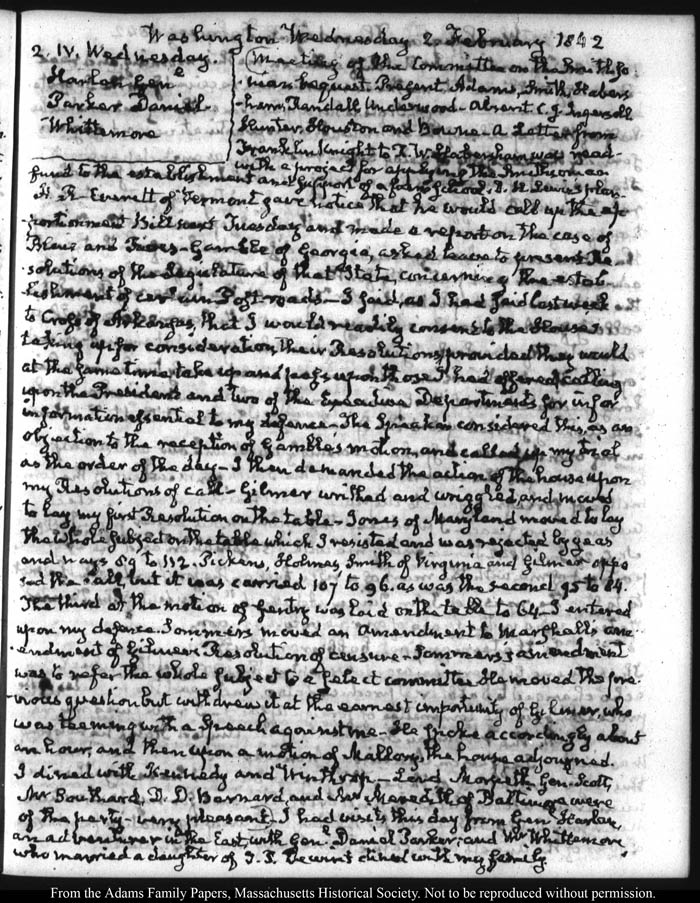 Washington Wednesday 2. February 1842
2. IV. Wednesday.
Harlan Genl
Parker Daniel
Whittemore
Meeting of the Committee on the Smithso-
nian bequest. Present Adams, Smith, Habers-
ham, Randall, Underwood - Absent C. J. Ingersoll
Hunter, Houston and Bowne - A Letter from
Franklin Knight to R. W. Habersham was read -
with a project for applying the Smithsonean
fund to the establishment and support of a farm School. D. H. Lewis's plan.
H. R. Everett of Vermont gave notice that he would call up the ap-
portionment Bill next Tuesday, and made a report on the case of
and Gamble of Georgia, asked leave to present Re-
solutions of the Legislature of that State, concerning the estab-
lishment of certain Post-roads - I said, as I had said last week
to Cross of Arkansas, that I would readily consent to the House's
taking up for consideration their Resolutions, provided they would
at the same time take up and pass upon those I had offered calling
upon the President and two of the Executive Departments for infor
information essential to my defence - The Speaker considered this, as an
objection to the reception of Gamble's motion, and called up my trial
as the order of the day - I then demanded the action of the house upon
my Resolutions of call - Gilmer writhed and wriggled, and moved
to lay my first Resolution on the table - Jones of Maryland moved to lay
the whole subject on the table which I resisted and was rejected by yeas
and nays 89 to 112. Pickens, Holmes, Smith of Virginia and Gilmer oppo
sed the call, but it was carried 107 to 96. as was the second 95 to 84.
The third at the motion of Gentry was laid on the table to 64 - I entered
upon my defence. Sommers moved an amendment to Marshall's am-
endment of Gilmer's Resolution of censure - Sommers's amendment
was to refer the whole subject to a select committee. He moved the pre-
vious question but withdrew it at the earnest importunity of Gilmer, who
was teeming with a Speech against me - He spoke accordingly about
an hour, and then upon a motion of Mallory the house adjourned.
I dined with Kennedy and Winthrop - Lord Morpeth, Genl Scott,
Mr Southard, D. D. Barnard, and Mr Meredith of Baltimore were
of the party - very pleasant - I had visits this day from Genl Harlan,
an adventurer in the East, with Genl Daniel Parker, and Mr Whittemore
who married a daughter of dined with my family.
From the Adams Family Papers, Massachusetts Historical Society. Not to be reproduced without permission.